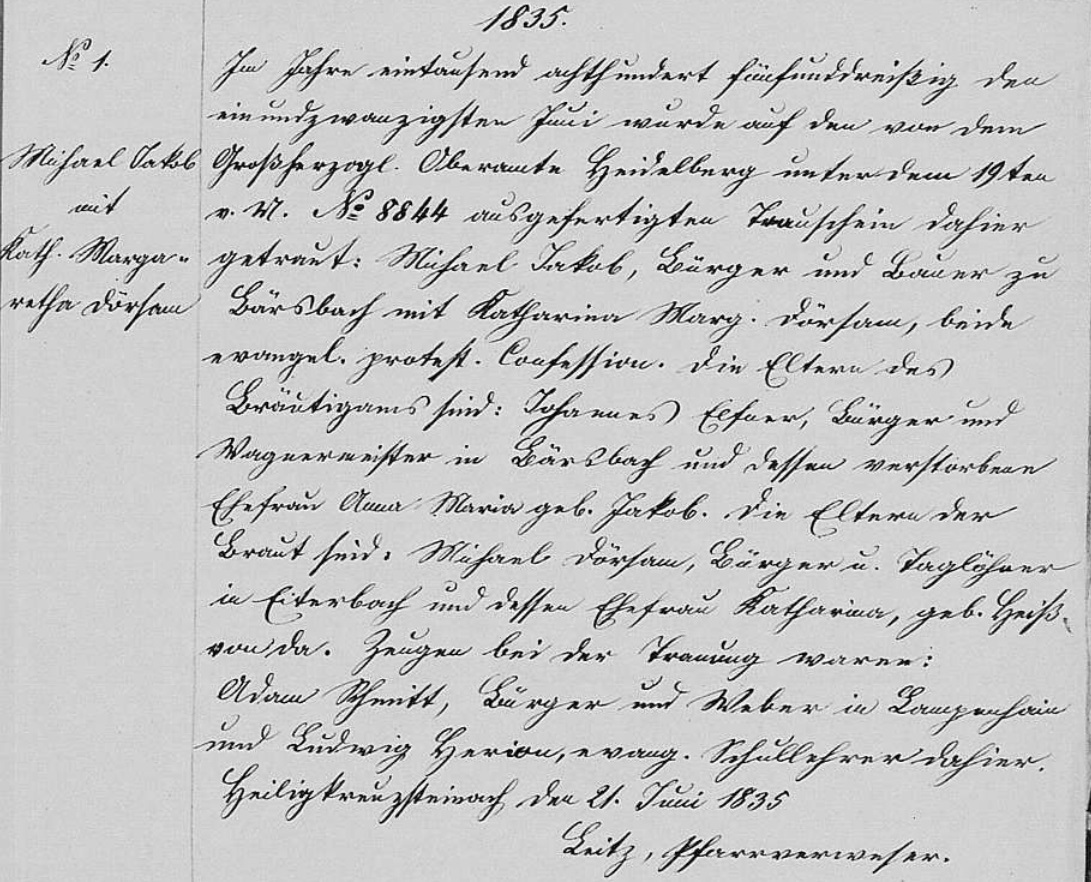 1835.
No 1.
Im Jahre eintausend achthundert fünfunddreißig den
einundzwanzigsten Juni wurde auf den von dem
Michael Jakob
Großherzogl. Oberamte Heidelberg unter dem 19ten
mit
v. M. No 8844 ausgefertigten Trauschein dahier
Kath. Marga-
getraut: Michael Jakob, Bürger und Bauer zu
retha Dörsam
Bärsbach mit Katharina Marg. Dörsam, beide
evangel. protest. Confession. Die Eltern des
Bräutigams sind: Johannes Elfner, Bürger und
Wagnermeister in Bärsbach und dessen verstorbene
Ehefrau Anna Maria geb. Jakob. Die Eltern der
Braut sind: Michael Dörsam, Bürger u. Taglöhner
in Eiterbach und dessen Ehefrau Katharina, geb. Heiß.
von da. Zeugen bei der Trauung waren:
Adam Schmitt, Bürger und Weber in Lampenhain
und Ludwig Herion, evang. Schullehrer dahier.
Heiligkreuzsteinach den 21. Juni 1835
Leitz, Pfarrverweser.